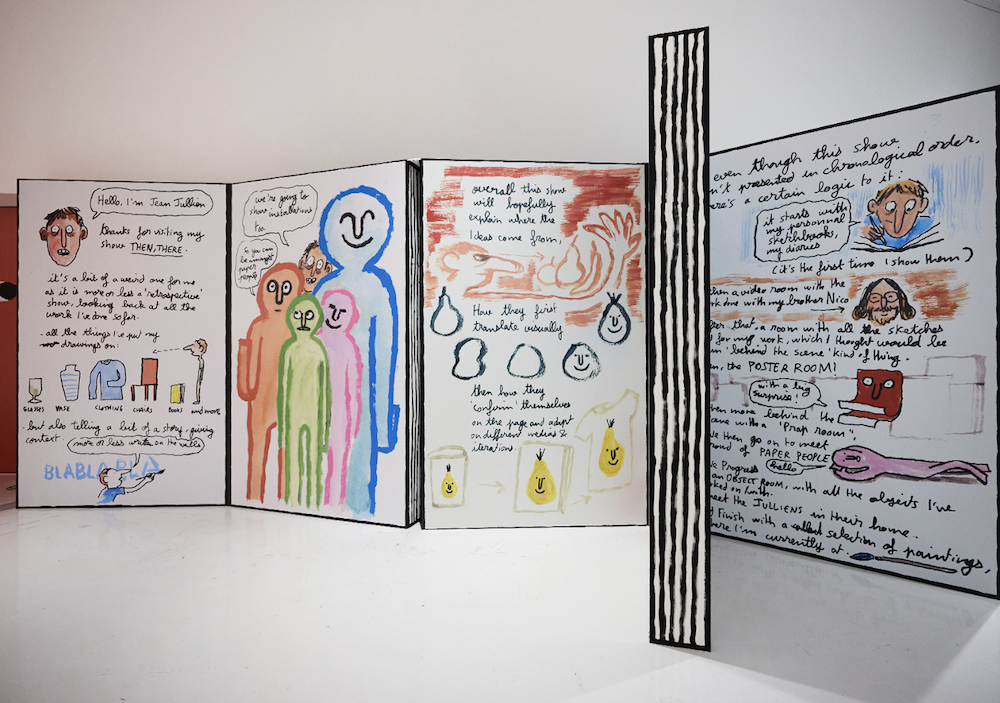 Hello, I'm Jean Jullien
thanks for visiting my
show THEN, THERE.
it's a bit of a weird one for me
as it is more or less a 'retrospective'
show, looking back at all the
work I've done so far.
- all the things I've put my
drawings on:
GLASSES VASE CLOTHING CHAIRS BOOKS and more
- but also telling a bit of a story, giving
context.
more or less write on the walls
BLABLABLA
we're going to
show installations
too.
So you can
be amongst
paper
people
overall this show
will hopefully
explain where the
Ideas come from,
How they first
translate visually
then how they
'conform' themselves
on the page and adapt
on different medias &
iterations.
even though this show
n't presented in chronological order,
ere's a certain logic to it:
it starts with
my personnal
sketchbooks,
my diaries
(it's the first time I show them)
hen a video room with the
rk done with my brother Nico
fter that a room with all the sketches
d for my work, which I thought would be
'behind the scene' kind of thing.
en, the POSTER ROOM!
with a big
surprise!
hen more behind the
cene with a "Prop room",
we then go on to meet
rowd of PAPER PEOPLE
hello
we Progress
an OBJECT ROOM, with all the objects I've
rked on/with.
meet the JULLIENS in their home.
Finish with a selection of paintings,
here I'm currently at.